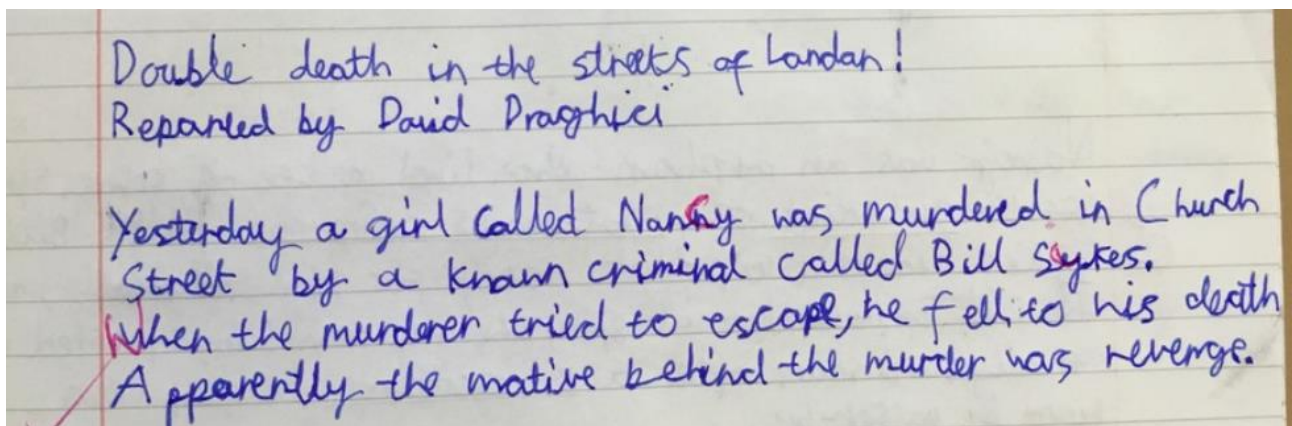 Double death in the streets of London!
Reported by David Draghici
Yesterday a girl called Nancy was murdered in Church
Street by a known criminal called Bill Sykes.
When the murderer tried to escape, he fell to his death
Apparently the motive behind the murder was revenge.